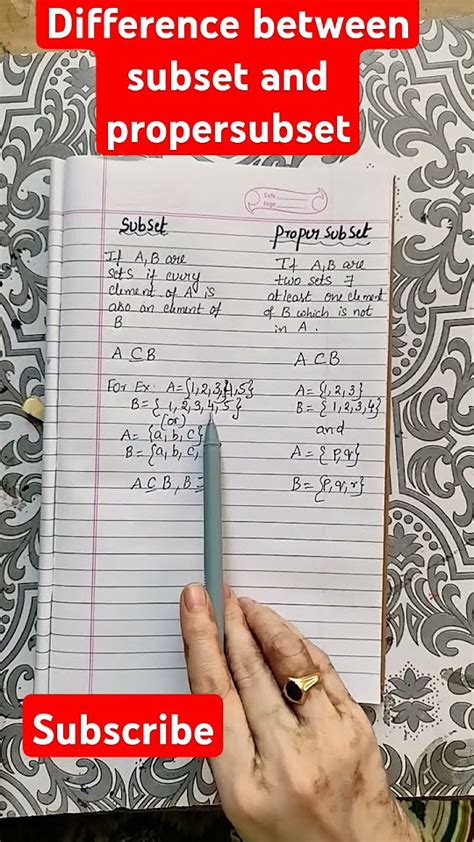 Difference between
subset and
propersubset
Date
Page
Subset
If A,B are
sets if every
element of A is
also an element of
B
A ⊆ B
For Ex: A={1,2,3,4,5}
B={1,2,3,4,5}
(or)
A={a,b,c}
B={a,b,c,
A ⊆ B, B
Proper Subset
If A,B are
two sets ∃
atleast one element
of B which is not
in A.
A ⊂ B
A={1,2,3}
B={1,2,3,4}
and
A={p,q}
B={p,q,r}
Subscribe